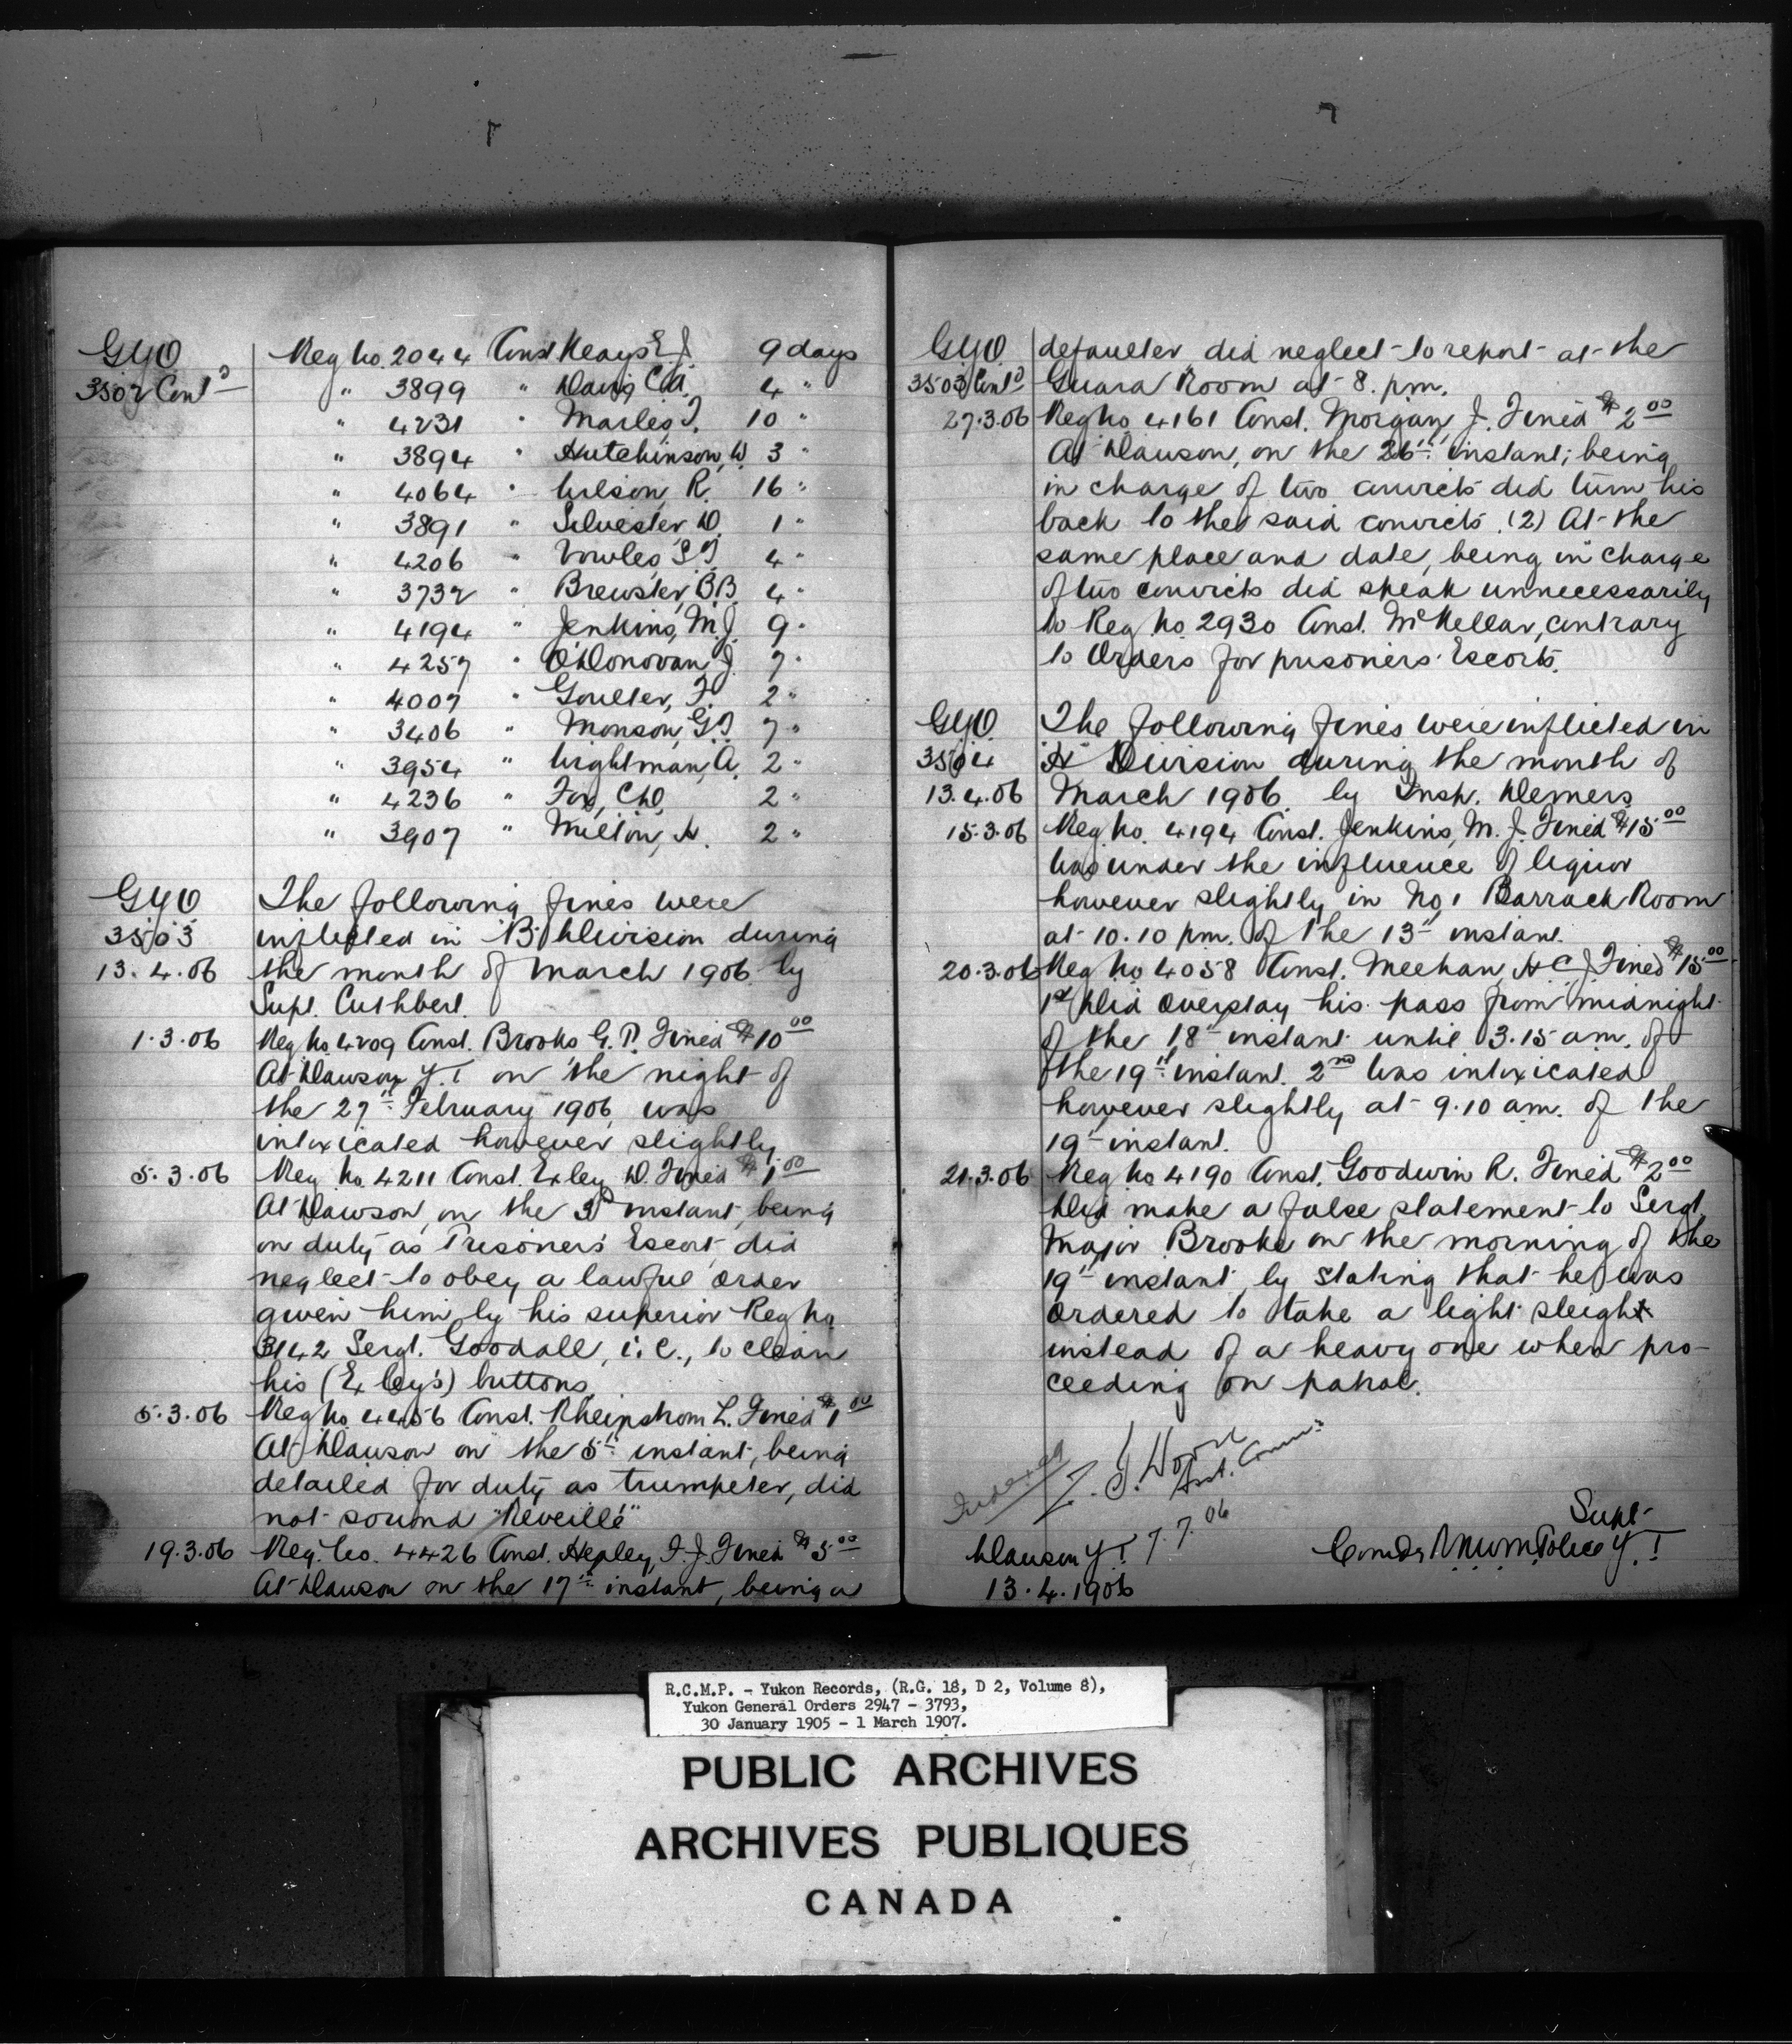 GYO Reg No. 2044 Const Keays E J. 9 days
3502 Cont'd " 3899 " Davis, C.A. 4 "
" 4231 " Marles, T. 10 "
" 3894 " Hutchinson, W. 3 "
" 4064 " Wilson, R. 16 "
" 3891 " Silvester, D. 1 "
" 4206 " Vowles, S.T. 4 "
" 3732 " Brewster, B.B 4 "
" 4194 " Jenkins, M.J. 9 "
" 4257 " O'Donovan, J. 7 "
" 4007 " Goulter, F. 2 "
" 3406 " Monson, G.T. 7 "
" 3954 " Wightman, A. 2 "
" 4236 " Fox, C.W. 2 "
" 3907 " Milton, H. 2 "
GYO The following fines were
3503 inflicted in "B" Division during
13.4.06 the month of March 1906 by
Supt. Cuthbert.
1.3.06 Reg No. 4209 Const. Brooks G.P. Fined $10 00
At Dawson Y.T on the night of
the 27th February 1906, was
intoxicated however slightly
5.3.06 Reg. No. 4211 Const. Exley D. Fined $1 00
At Dawson, on the 3rd instant, being
on duty as Prisoner's Escort, did
neglect to obey a lawful order
given him by his superior Reg No
3142 Sergt. Goodall, i.e., to clean
his (Exley's) buttons.
5.3.06 Reg No 4456 Const. Rheinstrom L. Fined $1 00
At Dawson on the 5th instant, being
detailed for duty as trumpeter, did
not sound "Reveillé"
19.3.06 Reg. No. 4426 Const. Hepley, T.J. Fined $5 00
At Dawson on the 17th instant, being a
GYO defaulter did neglect to report at the
3503 Cont'd Guard Room at 8. pm.
27.3.06 Reg No 4161 Const. Morgan, J. Fined $2 00
At Dawson, on the 26th instant; being
in charge of two convicts did turn his
back to the said convicts. (2) At the
same place and date, being in charge
of two convicts did speak unnecessarily
to Reg No 2930 Const. McKellar, contrary
to Orders for prisoners Escorts.
GYO. The following fines were inflicted in
3504 "H" Division during the month of
13.4.06 March 1906. by Insp. Demers.
15.3.06 Reg No. 4194 Const. Jenkins, M. J. Fined $15 00
Was under the influence of liquor
however slightly in No 1 Barrack Room
at 10.10 pm. of the 13th instant.
20.3.06 Reg No 4058 Const. Meehan, H C J Fined $15 00
1st Did overstay his pass from midnight
of the 18th instant until 3.15 am. of
the 19th instant. 2nd Was intoxicated
however slightly at 9.10 am. of the
19th instant.
21.3.06 Reg No 4190 Const. Goodwin R. Fined $2 00
Did make a false statement to Sergt.
Major Brooke on the morning of the
19th instant by stating that he was
ordered to take a light sleigh
instead of a heavy one when pro-
ceeding on patrol.
Indexed
Asst. Comm'r
Dawson Y T 7.7.06 Supt
13.4.1906 Comdg R.N.W.M. Police Y.T.
R.C.M.P. - Yukon Records, (R.G. 18, D 2, Volume 8),
Yukon General Orders 2947 - 3793,
30 January 1905 - 1 March 1907.
PUBLIC ARCHIVES
ARCHIVES PUBLIQUES
CANADA